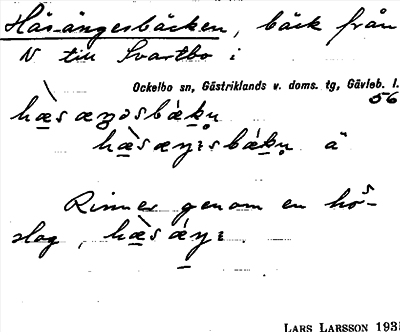 Häsängesbäcken, bäck från
N till Svartbo i
Ockelbo sn, Gästriklands v. doms. tg, Gävleb. l.
56
hæ̀sæŋəsbækn̥
hæ̀sæŋɛsbækn̥ ä
Rinner genom en hös-
slag, hæ̀sæŋɛ.
LARS LARSSON 193